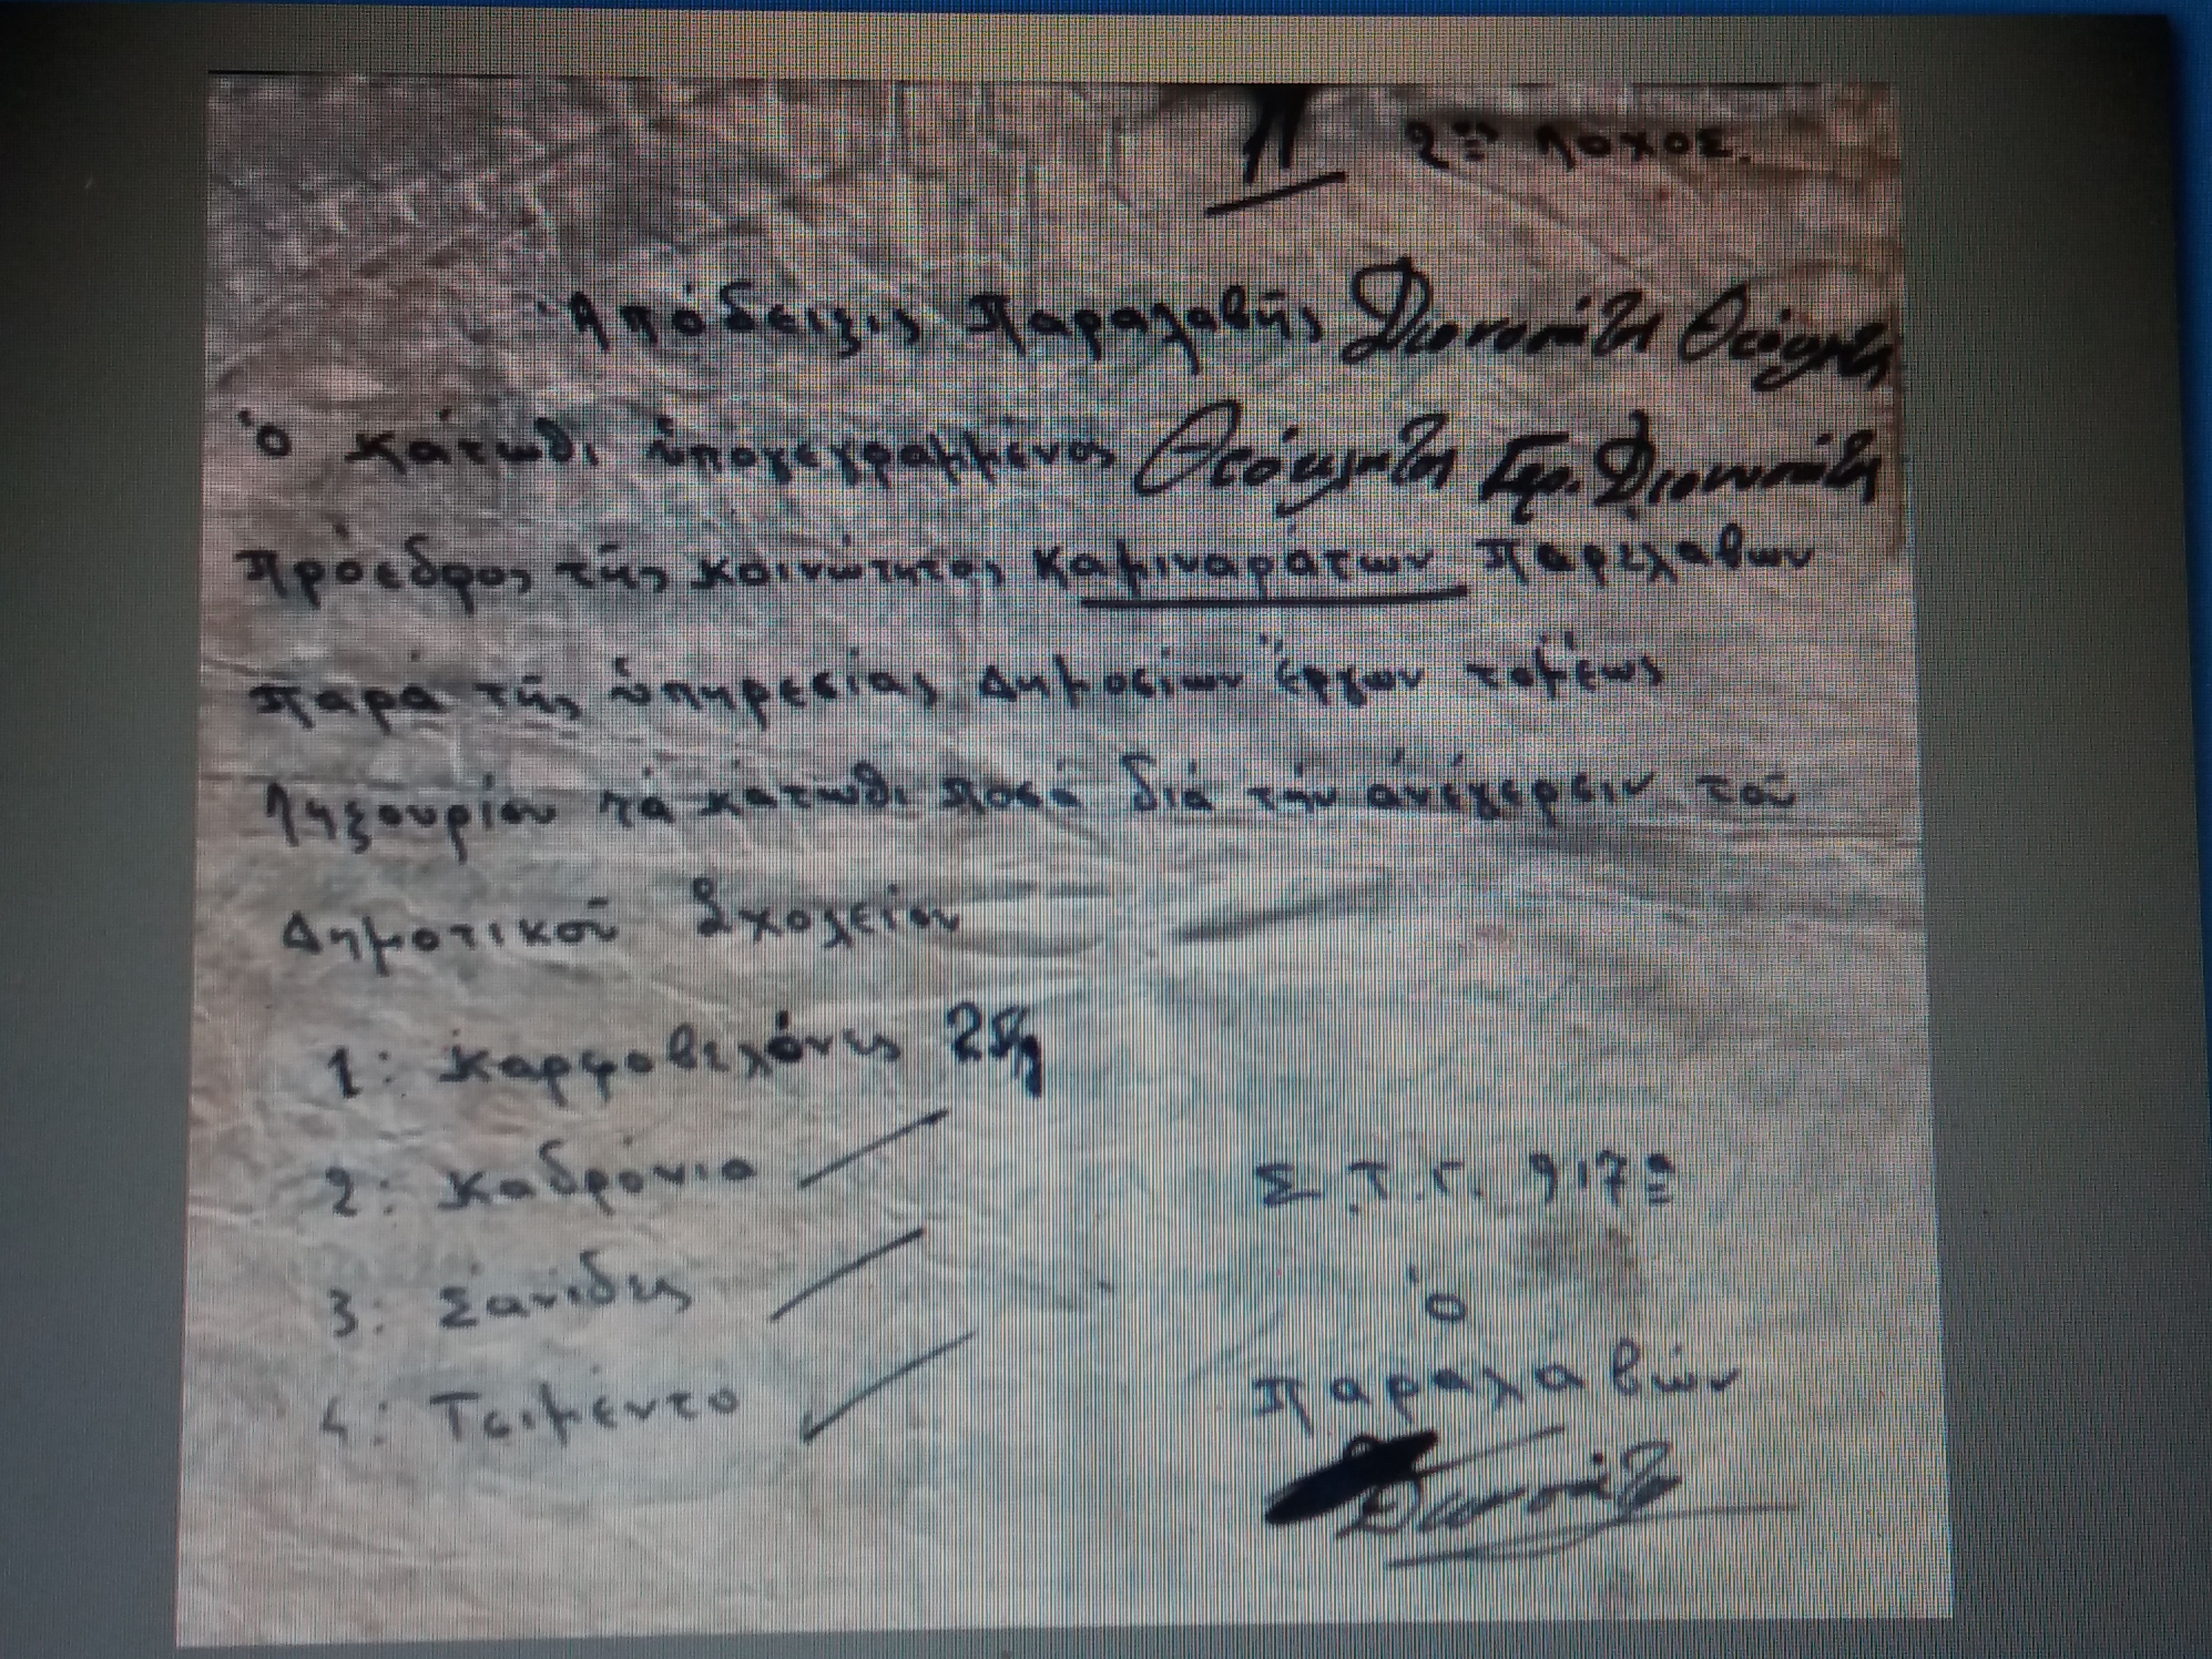 11 2ος Λόχος.
Ἀπόδειξις Παραλαβῆς Διονυσάτη
Ὁ κάτωθι ὑπογεγραμμένος Διονυσάτη
Πρόεδρος τῆς κοινώτητος Καμιναράτων παρέλαβων
παρά τῆς ὑπηρεσίας Δημοσίων Ἔργων τομέως
Ληξουρίου τά κάτωθι ποσά διά τήν ἀνέγερσιν τοῦ
Δημοτικοῦ Σχολείου
1: Καρφοβελόνες
2: Καδρόνια
3: Σανίδες
4: Τσιμέντο
Σ.Τ.Γ. 917α
Ὁ
παραλαβών